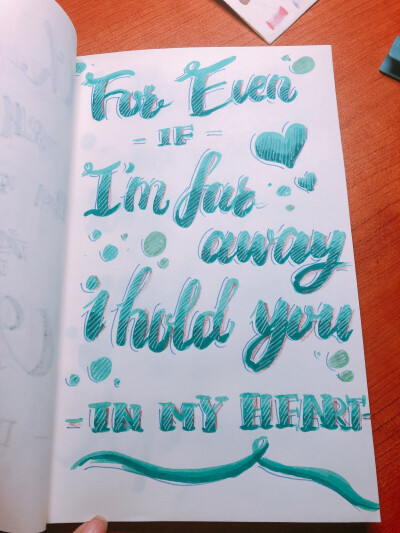 For Even
= IF =
I'm far
away
i hold you
- IN MY HEART -